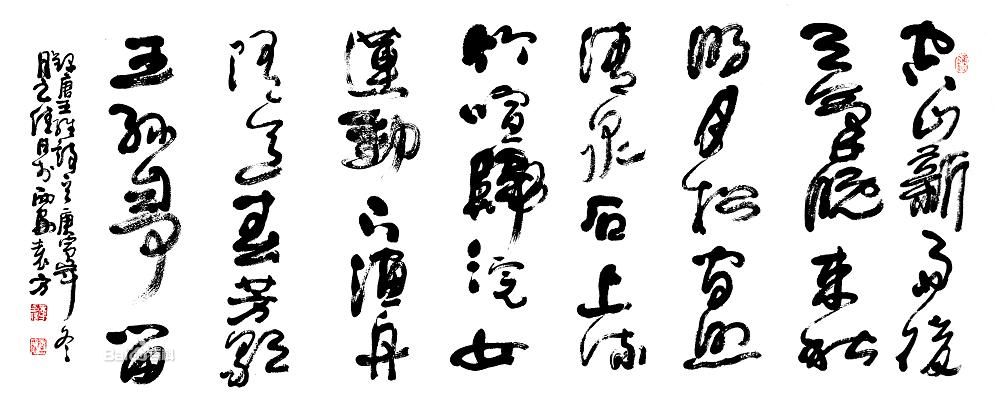 空山新雨後
天氣晚來秋
明月松間照
清泉石上流
竹喧歸浣女
蓮動下漁舟
隨意春芳歇
王孫自可留
録唐王維詩庚寅年冬
月之佳日於西安袁方
Baidu百科